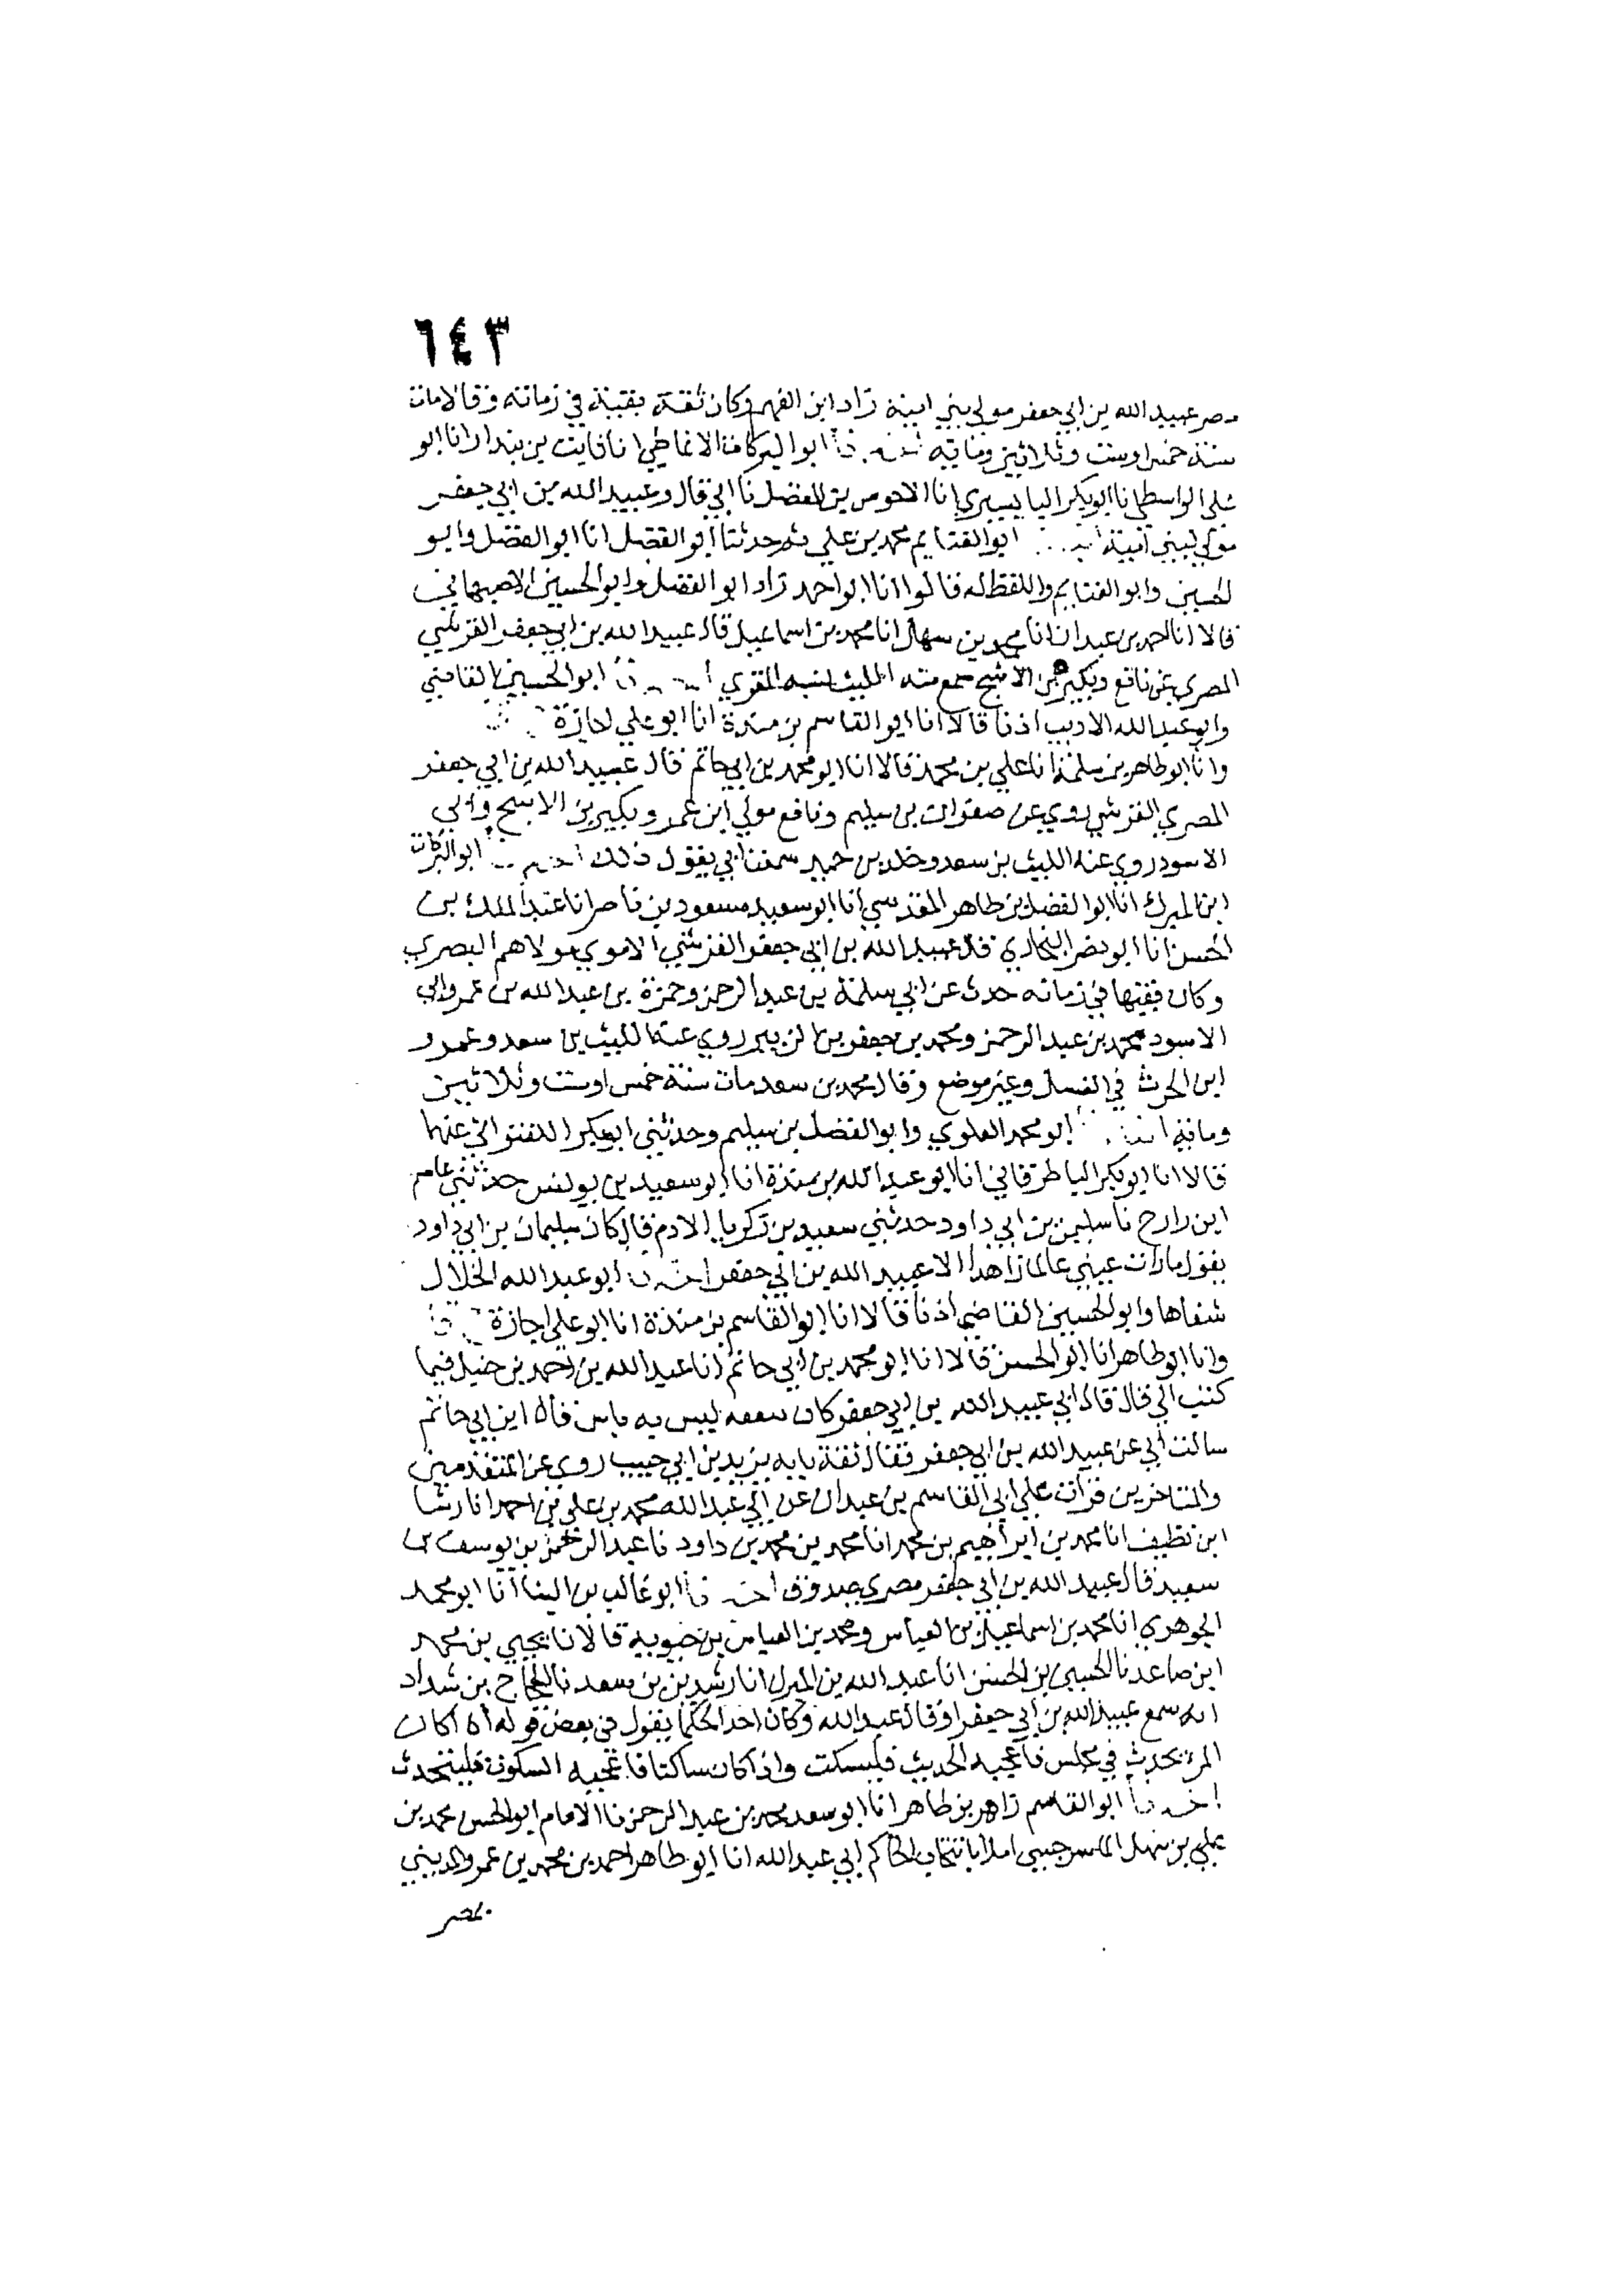 ٦٤٣
مصر عبيد الله بن ابي جعفر مولى بني امية زاد ابن الفهم وكان ثقة بقية في زمانه وقالا مات
سنة خمس اوست وثلاثين ومائة ابو البركات الانماطي انا ثابت بن بندار انا ابو
العلا الواسطي انا ابو بكر البابسيري انا الاحوص بن المفضل نا ابي قال وعبيد الله بن ابي جعفر
مولى لبني امية ابو الغنايم محمد بن علي ثم حدثنا ابو الفضل انا ابو الفضل وابو
الحسين وابو الغنايم واللفظ له قالوا انا ابو احمد زاد ابو الفضل وابو الحسين الاصبهاني
قالا انا احمد بن عبدان انا محمد بن سهل انا محمد بن اسماعيل قال عبيد الله بن ابي جعفر القرشي
المصري عن نافع وبكير بن الاشج سمع منه الليث نسبه المقري ابو الحسين القاضي
وابو عبد الله الاديب اذنا قالا انا ابو القاسم بن مندة انا ابو علي اجازة
وانا ابو طاهر بن سلمة انا علي بن محمد قالا انا ابو محمد بن ابي حاتم قال عبيد الله بن ابي جعفر
المصري القرشي روى عن صفوان بن سليم ونافع مولى ابن عمر وبكير بن الاشج وابي
الاسود روى عنه الليث بن سعد وخلد بن حميد سمعت ابي يقول ذلك ابو البركات
ابن المبرك انا ابو الفضل بن طاهر المقدسي انا ابو سعيد مسعود بن ناصر انا عبد الملك بن
الحسن انا ابو نصر البخاري قال عبيد الله بن ابي جعفر القرشي الاموي مولاهم البصري
وكان فقيها في زمانه حدث عن ابي سلمة بن عبد الرحمن وحمزة بن عبد الله بن عمر وابي
الاسود محمد بن عبد الرحمن ومحمد بن جعفر بن الزبير روى عنه الليث بن سعد وعمرو
ابن الحرث في الغسل وغير موضع وقال محمد بن سعد مات سنة خمس اوست وثلاثين
ومائة ابو محمد العلوي وابو الفضل بن سليم وحدثني ابو بكر اللفتواني عنهما
قالا انا ابو بكر الباطرقاني انا ابو عبد الله بن مندة انا ابو سعيد بن يونس حدثني عاصم
ابن رازح نا سليمن بن ابي داود حدثني سعيد بن زكريا الادم قال كان سليمان بن ابي داود
يقول ما رات عيني عالما زاهدا الا عبيد الله بن ابي جعفر ابو عبد الله الخلال
شفاها وابو الحسين القاضي اذنا قالا انا ابو القاسم بن مندة انا ابو علي اجازة
وانا ابو طاهر انا ابو الحسن قالا انا ابو محمد بن ابي حاتم انا عبد الله بن احمد بن حنبل فيما
كتب الي قال قال ابي عبيد الله بن ابي جعفر كان ليس به باس قال ابن ابي حاتم
سالت ابي عن عبيد الله بن ابي جعفر فقال ثقة بابه يزيد بن ابي حبيب روى عن المتقدمين
والمتاخرين قرات على ابي القاسم بن عبدان عن ابي عبد الله محمد بن علي بن احمد انا رشا
ابن نظيف انا محمد بن ابراهيم بن محمد انا محمد بن محمد بن داود نا عبد الرحمن بن يوسف بن
سعيد قال عبيد الله بن ابي جعفر مصري صدوق ابو غالب بن البنا انا ابو محمد
الجوهري انا محمد بن اسماعيل بن العباس ومحمد بن العباس بن حيويه قالا نا يحيى بن محمد
ابن صاعد نا الحسين بن الحسن انا عبد الله بن المبرك انا رشدين بن سعد نا الحجاج بن شداد
انه سمع عبيد الله بن ابي جعفر او قال عبد الله وكان احد الحكما يقول في بعض قوله اذا كان
المرء يحدث في مجلس فاعجبه الحديث فليسكت واذا كان ساكتا فاعجبه السكوت فليتحدث
ابو القاسم زاهر بن طاهر انا ابو سعد محمد بن عبد الرحمن نا الامام ابو الحسن محمد بن
علي بن سهل الماسرجسي املا بانتخاب الحاكم ابي عبد الله انا ابو طاهر احمد بن محمد بن عمرو المديني
بمصر